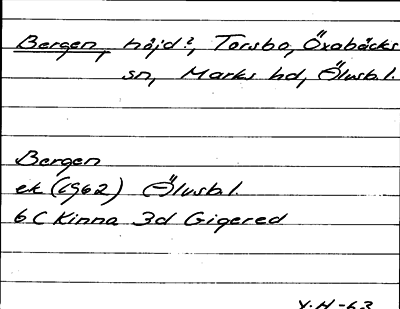 Bergen, höjd?, Torsbo, Öxabäcks
sn, Marks hd, Älvsb.l.
Bergen
ek (1962) Älvsb.l.
6C Kinna 3d Gigered